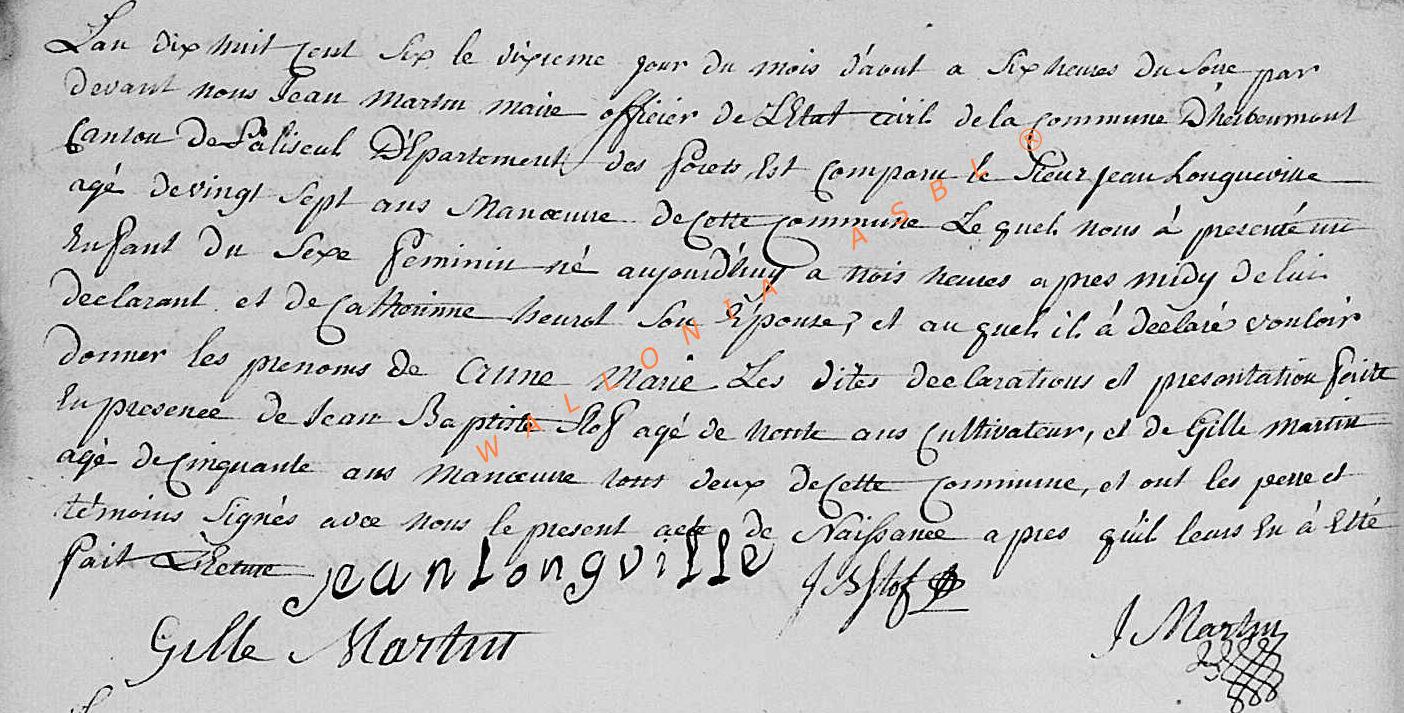 Lan dix huit cent six le dixieme jour du mois d'aout a six heures du soire par
devant nous Jean Martin maire officier de L'Etat civil de la commune D'herbeumont
Canton de Paliseul Département des forets, Est comparu le Sieur jean Longueville
agé de vingt sept ans Manœuvre de cette commune Le quel nous à presenté un
Enfant du sexe feminin né aujourd'huy a trois heures apres midy de lui
declarant et de Catherinne heurot son Epouse, et au quel il à déclaré vouloir
donner les prenoms de Marie Les dites declarations et presentation faitte
En presence de Jean Baptiste Slof agé de trente ans Cultivateur, et de Gille Martin
agé de cinquante ans Manœuvre tous deux de cette commune, et ont les perre et
témoins signés avec nous le present acte de Naissance apres qu'il leurs En à Etté
fait Lecture jean Longville J B Slof
Gille Martin J Martin
WALLONIA ASBL ®